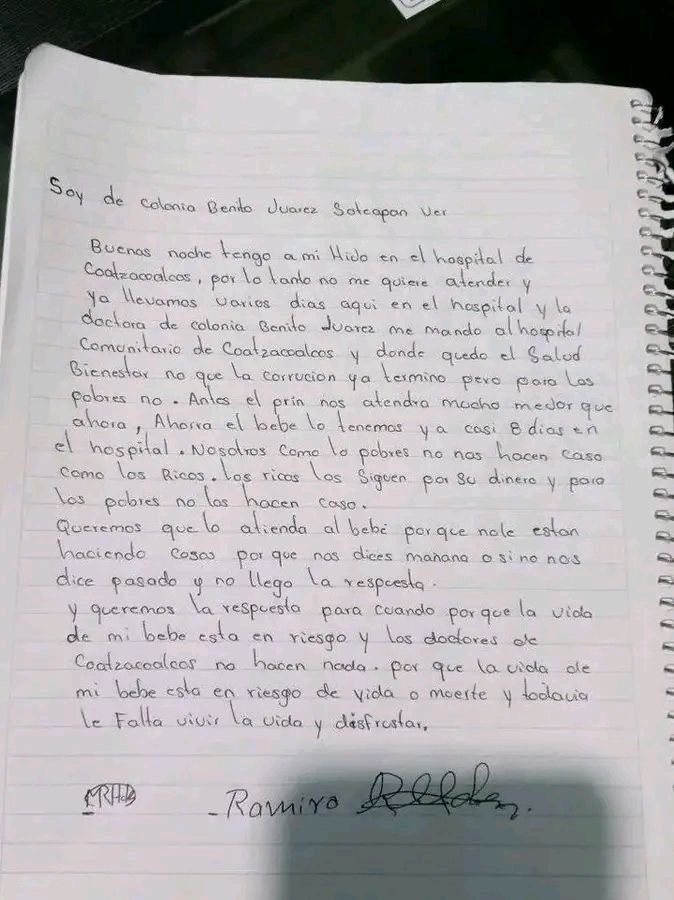 Soy de colonia Benito Juarez Soteapan Ver
Buenas noche tengo a mi Hido en el hospital de
Coatzacoalcos, por lo tanto no me quiere atender y
ya llevamos varios dias aqui en el hospital y la
doctora de colonia Benito Juarez me mando al hospital
Comunitario de Coatzacoalcos y donde quedo el Salud
Bienestar no que la corrucion ya termino pero para los
pobres no. Antes el prin nos atendra mucho medor que
ahora, Ahorra el bebe lo tenemos ya casi 8 dias en
el hospital. Nosotros como lo pobres no nos hacen caso
como los Ricos. los ricos los Siguen por su dinero y para
los pobres no los hacen caso.
Queremos que lo atienda al bebé por que nole estan
haciendo cosas por que nos dices mañana o si no nos
dice pasado y no llego la respuesta.
y queremos la respuesta para cuando por que la vida
de mi bebe esta en riesgo y los doctores de
Coatzacoalcos no hacen nada. por que la vida de
mi bebe esta en riesgo de vida o moerte y todavia
le Falta vivir la vida y disfrostar.
- Ramiro